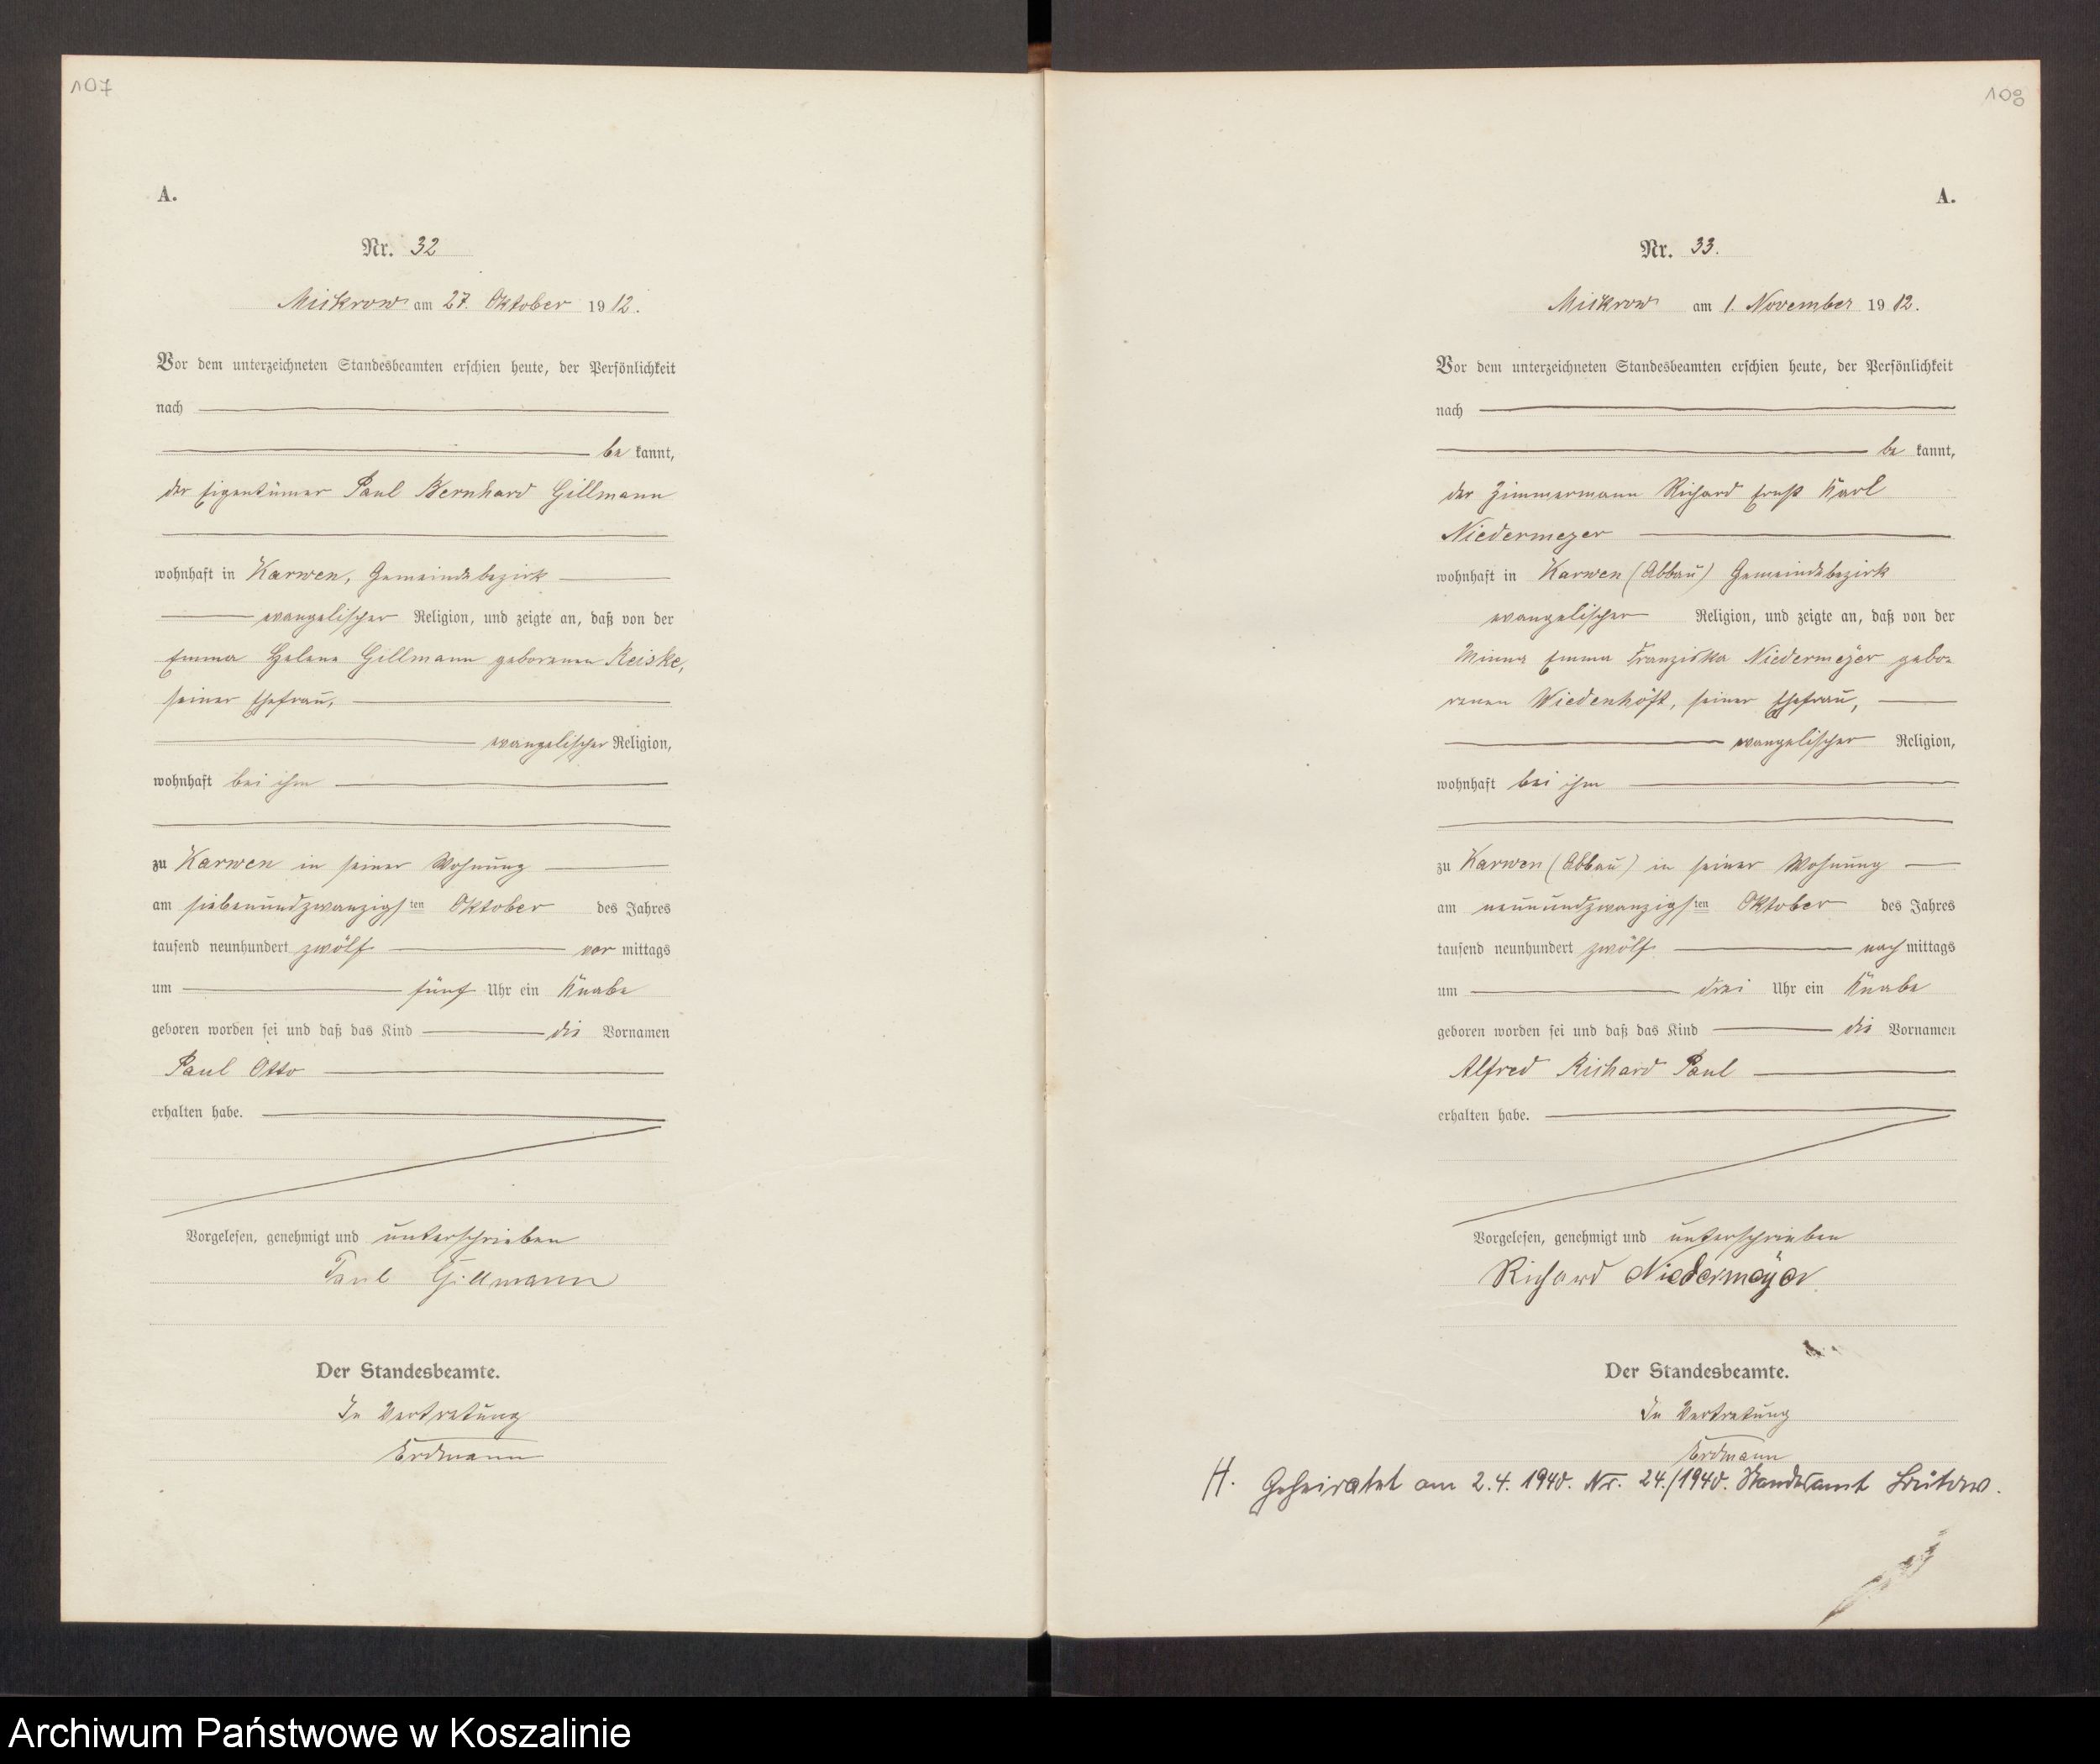 107
A.
Nr. 32
Mickrow am 27. Oktober 1912.
Vor dem unterzeichneten Standesbeamten erschien heute, der Persönlichkeit
nach
be kannt,
der Eigentümer Paul Bernhard Gillmann
wohnhaft in Karwen, Gemeindebezirk
evangelischer Religion, und zeigte an, daß von der
Emma Helene Gillmann geborenen Reiske,
seiner Ehefrau,
evangelischer Religion,
wohnhaft bei ihm
zu Karwen in seiner Wohnung
am siebenundzwanzigsten Oktober des Jahres
tausend neunhundert zwölf vor mittags
um fünf Uhr ein Knabe
geboren worden sei und daß das Kind die Vornamen
Paul Otto
erhalten habe.
Vorgelesen, genehmigt und unterschrieben
Paul Gillmann
Der Standesbeamte.
In Vertretung
Erdmann
108
A.
Nr. 33.
Mickrow am 1. November 1912.
Vor dem unterzeichneten Standesbeamten erschien heute, der Persönlichkeit
nach
be kannt,
der Zimmermann Richard Ernst Karl
Niedermeyer
wohnhaft in Karwen (Abbau) Gemeindebezirk
evangelischer Religion, und zeigte an, daß von der
Minna Emma Franziska Niedermeyer gebo-
renen Wiedenhöft, seiner Ehefrau,
evangelischer Religion,
wohnhaft bei ihm
zu Karwen (Abbau) in seiner Wohnung
am neunundzwanzigsten Oktober des Jahres
tausend neunhundert zwölf nach mittags
um drei Uhr ein Knabe
geboren worden sei und daß das Kind die Vornamen
Alfred Richard Paul
erhalten habe.
Vorgelesen, genehmigt und unterschrieben
Richard Niedermeÿer
Der Standesbeamte.
In Vertretung
Erdmann
H. Geheiratet am 2.4.1940. Nr. 24./1940. Standesamt Bütow.
Archiwum Państwowe w Koszalinie